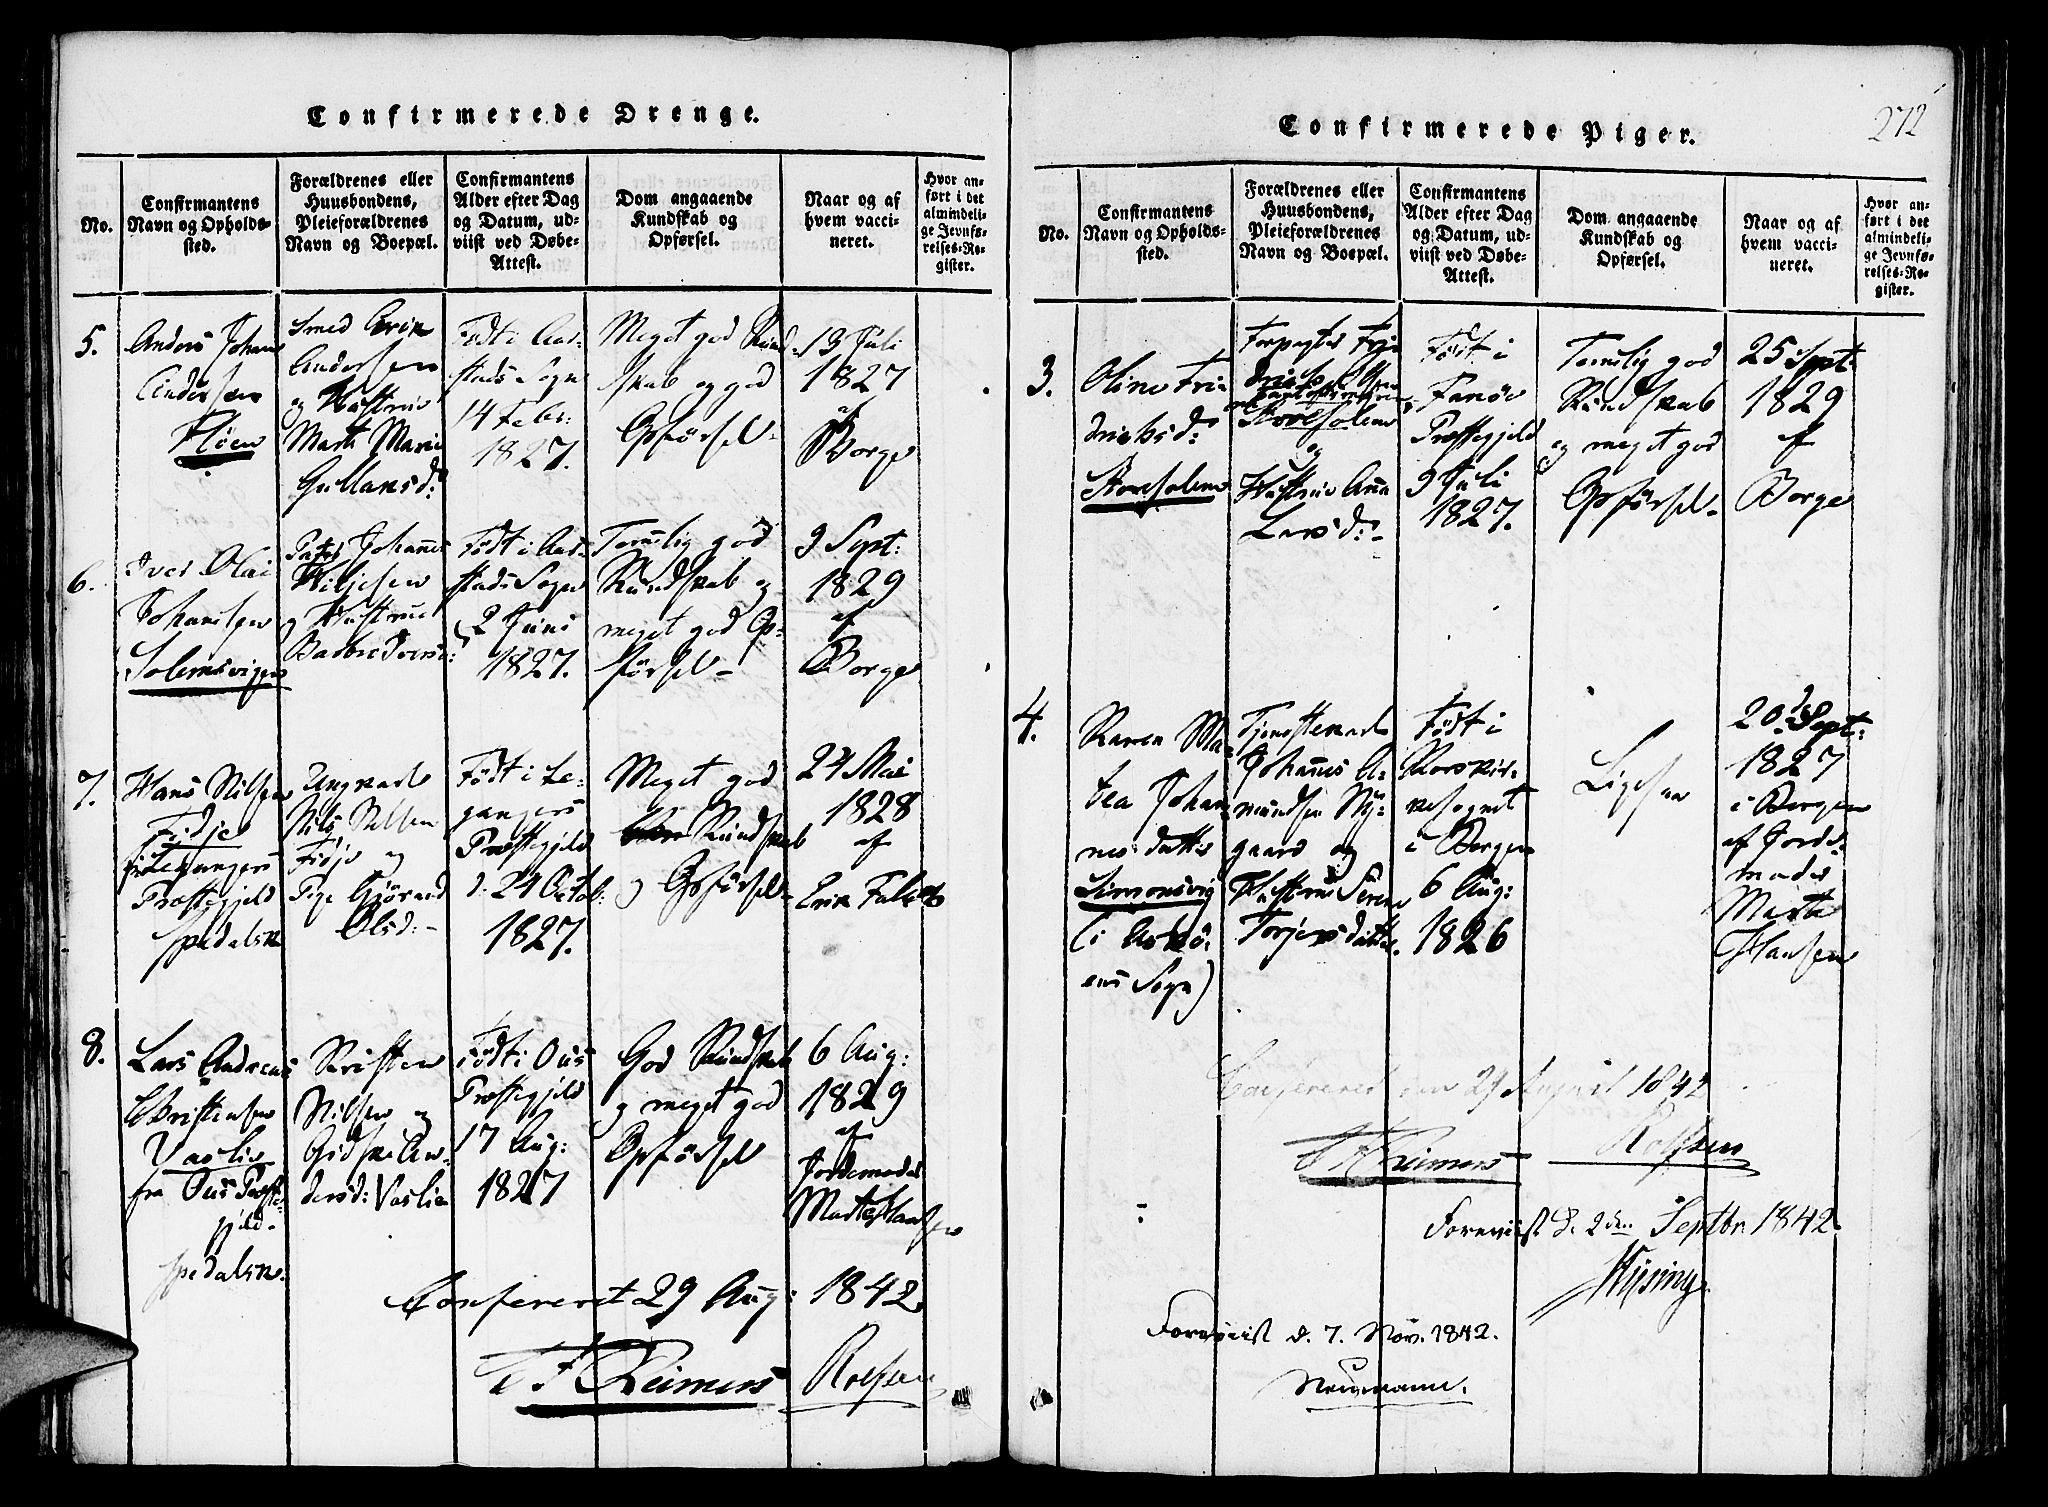 Confirmerede Drenge.
No.
Confirmantens
Navn og Opholds-
sted.
Forældrenes eller
Huusbondens,
Pleieforældrenes
Navn og Boepæl.
Confirmantens
Alder efter Dag
og Datum, ud-
viist ved Døbe-
Attest.
Dom angaaende
Kundskab og
Opførsel.
Naar og af
hvem vacci-
neret.
Hvor an-
ført i det
almindeli-
ge Jevnfø-
relses-Re-
gister.
5.
Anders Johan
Andersen
Fløen
Smed
Andersen
og Hustrue
Marte Marie
Gullaksd:
Født i Aar-
stads Sogn
14 Febr:
1827.
Meget god Kund-
skab og god
Opførsel-
13 Juli
1827
af
Borge
6.
Iver Olai
Johansen
Solemsvigen
Peter Johannes
Wiljesen
og Hustrue
Barbro Iversd:
Født i Aar-
stads Sogn
2 Juni
1827.
Temlig god
Kundskab og
meget god Op-
førsel-
9 Sept:
1829
af
Borge
7.
Hans Nilsen
Fidje
fra Leganger
Præstegjeld
spedalsk
Ungkarl
Nils Nilsen
Fidje og
Pige Gjørond
Olsd:-
Født i Le-
gangers
Præstegjeld
d: 24 Octob:
1827.
Meget god
Kundskab
og Opførsel-
24 Mai
1828
af
Erik Falch
8.
Lars Andreas
Christensen
Vaslie
fra Ous Præste-
gjeld-
spedalsk.
Kristen
Nilsen og
Gidske An-
dersd: Vaslie
Født i Ous
Præstegjeld
17 Aug:
1827
God Kundskab
og meget god
Opførsel
6 Aug:
1829
af
Jordemoder
Marte Hansen
Confereret 29 Aug: 1842.
Reimers
Rolfsen
272
Confirmerede Piger.
No.
Confirmantens
Navn og Opholds-
sted.
Forældrenes eller
Huusbondens,
Pleieforældrenes
Navn og Boepæl.
Confirmantens
Alder efter Dag
og Datum, ud-
viist ved Døbe-
Attest.
Dom angaaende
Kundskab og
Opførsel.
Naar og af
hvem vacci-
neret.
Hvor an-
ført i det
almindeli-
ge Jevnfø-
relses-Re-
gister.
3.
Oline Frie
drichsd:
Storesolem
Forpagter Frie
drich Olsen
Storesolem
og
Hustrue Anna
Larsd:-
Født i
Fanøe
Præstegjeld
9 Juli
1827.
Temlig god
Kundskab
og meget god
Opførsel-
25 Sept:
1829
af
Borge
4.
Karen Ma-
tea Johan
nesdatter
Simonsvig
(i Askø-
ens Sogn)
Tjenestekarl
Johannes A-
mundsen Ny-
gaard og
Hustrue Serene
Torjersdatter
Født i
Korskir-
kesognet
i Bergen
6 Aug:
1826
Ligesaa
20 Sept:
1827
i Bergen
af Jorde-
moder
Marte
Hansen
Confereret den 29 August 1842
Reimers
Rolfsen
Foreviist d. 2den Septbr. 1842.
Foreviist d. 7. Nov. 1842.
Neumann.